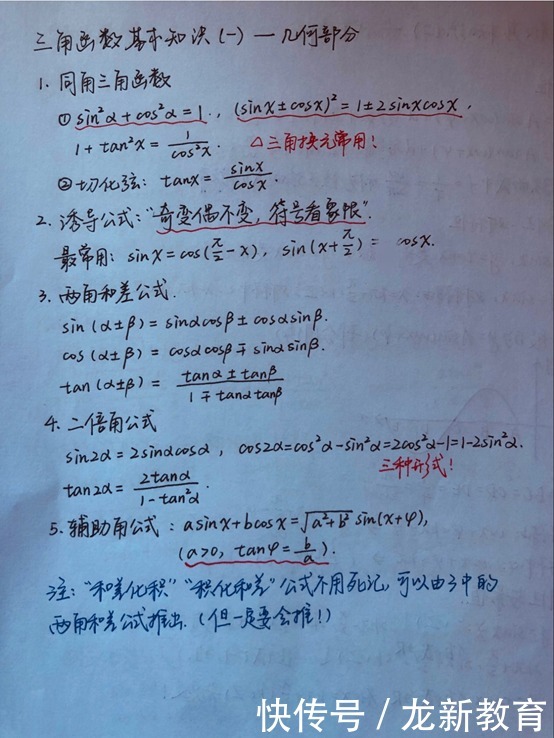 三角函数基本知识(一) — 几何部分
1. 同角三角函数
① sin²α+cos²α=1., (sinx±cosx)²=1±2sinxcosx,
1+tan²x=1/cos²x. △三角换元常用!
②切化弦: tanx=sinx/cosx.
2. 诱导公式:"奇变偶不变, 符号看象限".
最常用: sinx=cos(π/2-x), sin(x+π/2)= cosx.
3. 两角和差公式.
sin(α±β)=sinαcosβ±cosαsinβ.
cos(α±β)=cosαcosβ∓sinαsinβ.
tan(α±β)=tanα±tanβ/1∓tanαtanβ
4. 二倍角公式
sin2α=2sinαcosα, cos2α=cos²α-sin²α=2cos²α-1=1-2sin²α.
三种形式!
tan2α=2tanα/1-tan²α.
5. 辅助角公式: asinx+bcosx=√a²+b² sin(x+φ),
(a>0, tanφ=b/a).
注: "和差化积" "积化和差" 公式不用死记, 可以由3中的
两角和差公式推出. (但一定要会推!)
快传号 / 龙新教育